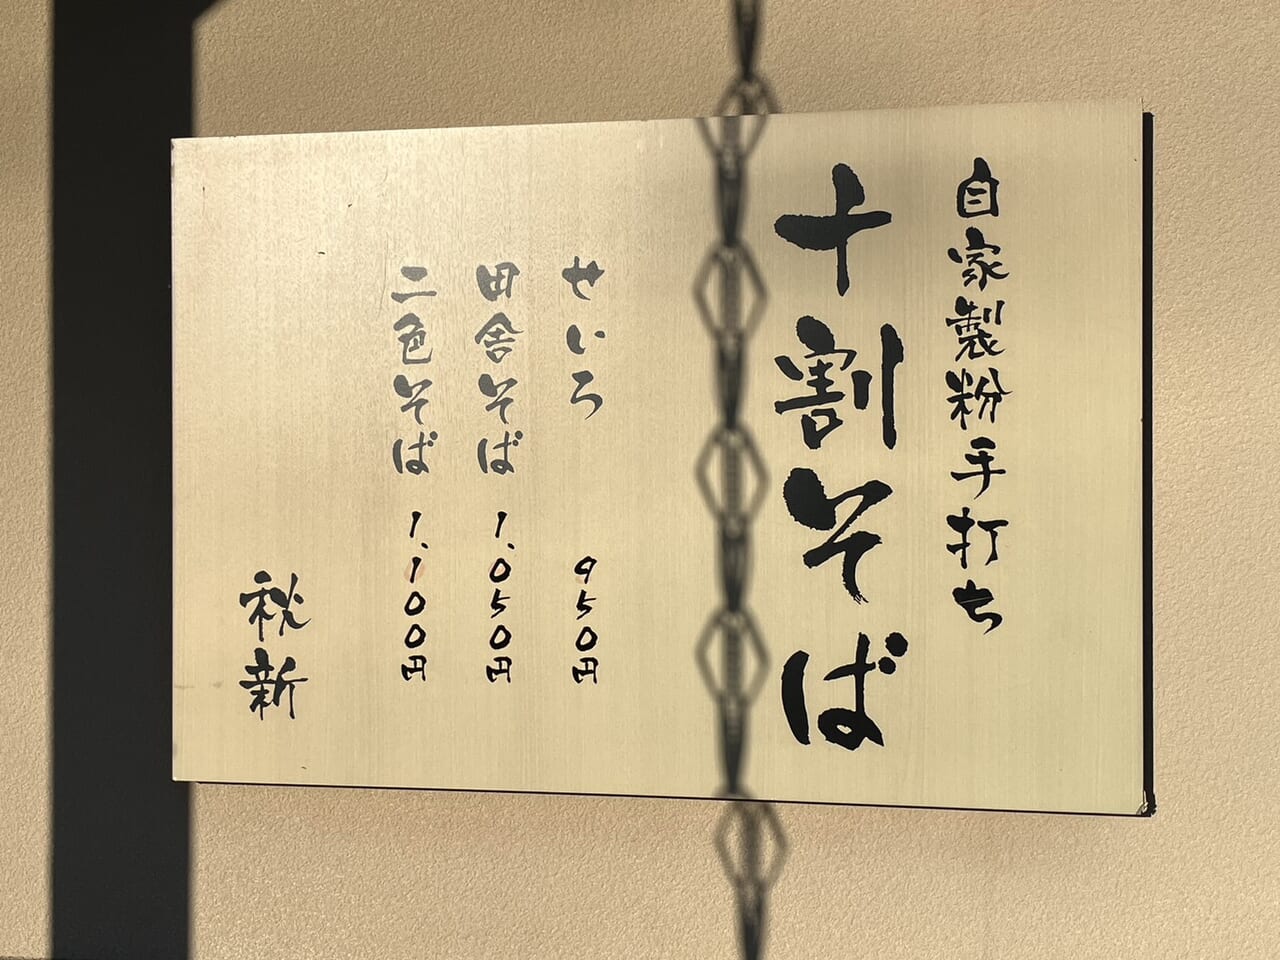 自家製粉手打ち
十割そば
せいろ 950円
田舎そば 1,050円
二色そば 1,100円
秋新